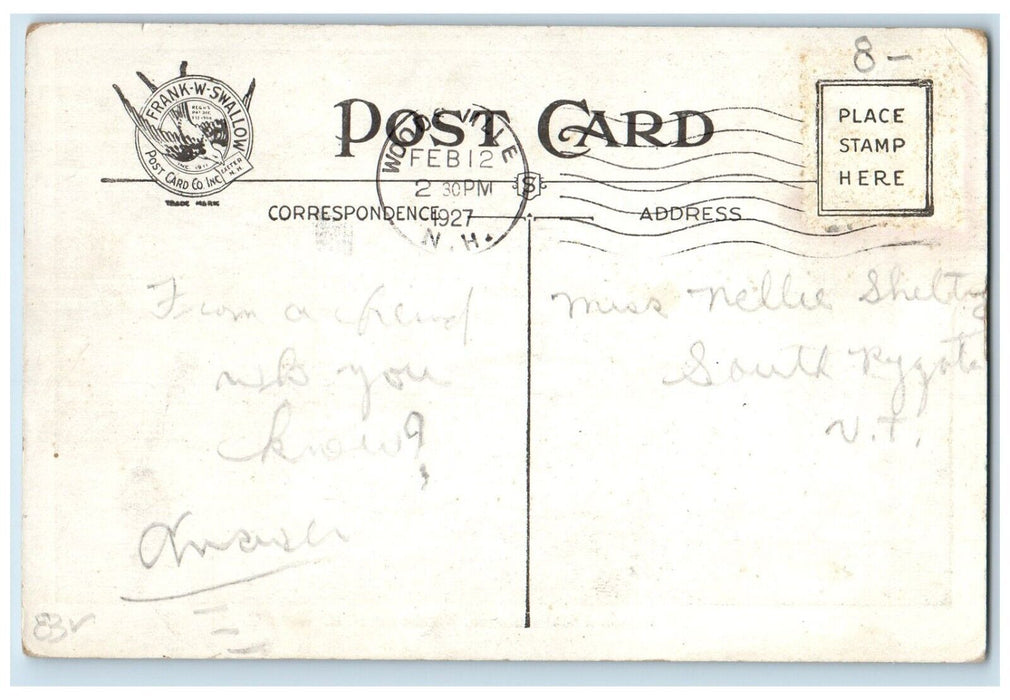 8-
FRANK-W-SWALLOW
POST CARD CO. INC.
EXETER N.H.
TRADE MARK
POST CARD
PLACE
STAMP
HERE
WOODSVILLE
FEB 12
2 30 PM
1927
N.H.
S
CORRESPONDENCE
ADDRESS
From a friend
who you
know?
Miss Nellie Shelt
South Rygate
V.T.
83